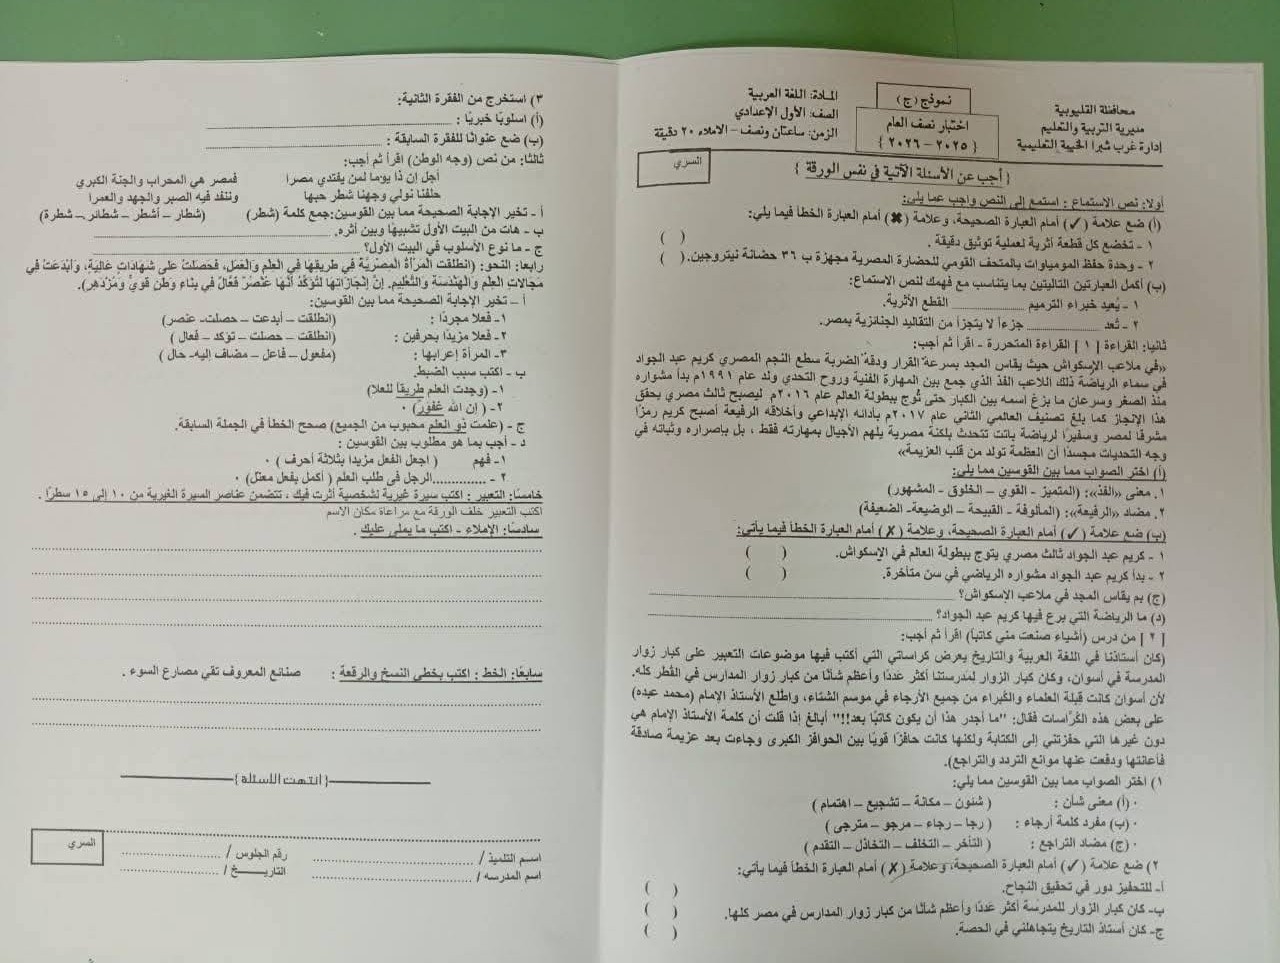 محافظة القليوبية
مديرية التربية والتعليم
إدارة غرب شبرا الخيمة التعليمية
نموذج (ج)
اختبار نصف العام
{ ٢٠٢٥ – ٢٠٢٦ }
المادة: اللغة العربية
الصف: الأول الإعدادي
الزمن: ساعتان ونصف – الاملاء ٢٠ دقيقة
السري
{ أجب عن الأسئلة الآتية في نفس الورقة }
أولا: نص الاستماع : استمع إلى النص واجب عما يلي:
(أ) ضع علامة (✓) أمام العبارة الصحيحة، وعلامة (✖) أمام العبارة الخطأ فيما يلي:
١ - تخضع كل قطعة أثرية لعملية توثيق دقيقة . ( )
٢ - وحدة حفظ المومياوات بالمتحف القومي للحضارة المصرية مجهزة ب ٣٦ حضانة نيتروجين. ( )
(ب) أكمل العبارتين التاليتين بما يتناسب مع فهمك لنص الاستماع:
١ - يُعيد خبراء الترميم .................. القطع الأثرية.
٢ - تُعد .................. جزءاً لا يتجزأ من التقاليد الجنائزية بمصر.
ثانيا: القراءة [ ١ ] القراءة المتحررة - اقرأ ثم أجب:
«في ملاعب الإسكواش حيث يقاس المجد بسرعة القرار ودقة الضربة سطع النجم المصري كريم عبد الجواد
في سماء الرياضة ذلك اللاعب الفذ الذي جمع بين المهارة الفنية وروح التحدي ولد عام ١٩٩١م بدأ مشواره
منذ الصغر وسرعان ما بزغ اسمه بين الكبار حتى تُوج ببطولة العالم عام ٢٠١٦م ليصبح ثالث مصري يحقق
هذا الإنجاز كما بلغ تصنيف العالمي الثاني عام ٢٠١٧م بأدائه الإبداعي وأخلاقه الرفيعة أصبح كريم رمزًا
مشرفا لمصر وسفيرًا لرياضة باتت تتحدث بلكنة مصرية يلهم الأجيال بمهارته فقط ، بل بإصراره وثباته في
وجه التحديات مجسدًا أن العظمة تولد من قلب العزيمة»
(أ) اختر الصواب مما بين القوسين مما يلي:
١. معنى «الفذ»: (المتميز - القوي – الخلوق - المشهور)
٢. مضاد «الرفيعة»: (المألوفة - القبيحة – الوضيعة- الضعيفة)
(ب) ضع علامة (✓) أمام العبارة الصحيحة، وعلامة (✗) أمام العبارة الخطأ فيما يأتي:
١ - كريم عبد الجواد ثالث مصري يتوج ببطولة العالم في الإسكواش. ( )
٢ - بدأ كريم عبد الجواد مشواره الرياضي في سن متأخرة. ( )
(ج) بم يقاس المجد في ملاعب الإسكواش؟ ..................
(د) ما الرياضة التي برع فيها كريم عبد الجواد؟ ..................
[ ٢ ] من درس (أشياء صنعت مني كاتبا) اقرأ ثم أجب:
(كان أستاذنا في اللغة العربية والتاريخ يعرض كراساتي التي أكتب فيها موضوعات التعبير على كبار زوار
المدرسة في أسوان، وكان كبار الزوار لمدرستنا أكثر عددًا وأعظم شأنًا من كبار زوار المدارس في القطر كله.
لأن أسوان كانت قبلة العلماء والكُبراء من جميع الأرجاء في موسم الشتاء، واطلع الأستاذ الإمام (محمد عبده)
على بعض هذه الكُرَّاسات فقال: "ما أجدر هذا أن يكون كاتبًا بعد!!" أبالغ إذا قلت أن كلمة الأستاذ الإمام هي
دون غيرها التي حفزتني إلى الكتابة ولكنها كانت حافزًا قويًا بين الحوافز الكبرى وجاءت بعد عزيمة صادقة
فأعانتها ودفعت عنها موانع التردد والتراجع).
١) اختر الصواب مما بين القوسين مما يلي:
(أ) معنى شأن : ( شئون – مكانة – تشجيع – اهتمام )
(ب) مفرد كلمة أرجاء : ( رجا – رجاء – مرجو – مترجى )
(ج) مضاد التراجع : ( التأخر – التخلف – التخاذل – التقدم )
٢) ضع علامة (✓) أمام العبارة الصحيحة، وعلامة (✗) أمام العبارة الخطأ فيما يأتي:
أ- للتحفيز دور في تحقيق النجاح. ( )
ب- كان كبار الزوار للمدرسة أكثر عددًا وأعظم شأنا من كبار زوار المدارس في مصر كلها. ( )
ج- كان أستاذ التاريخ يتجاهلني في الحصة. ( )
٣) استخرج من الفقرة الثانية:
(أ) اسلوبًا خبريًا : ..................
(ب) ضع عنوانًا للفقرة السابقة : ..................
ثالثا: من نص (وجه الوطن) اقرأ ثم أجب:
أجل إن ذا يوما لمن يفتدي مصرا فمصر هي المحراب والجنة الكبري
حلفنا نولي وجهنا شطر حبها وننفد فيه الصبر والجهد والعمرا
أ - تخير الإجابة الصحيحة مما بين القوسين:جمع كلمة (شطر) (شطار – أشطر – شطائر – شطرة)
ب - هات من البيت الأول تشبيهًا وبين أثره. ..................
ج - ما نوع الأسلوب في البيت الأول؟ ..................
رابعا: النحو: (انطلقت المَرْأةُ المِصْريّة في طريقها في العِلم والعَمَل، فحَصَلتْ على شَهَاداتٍ عَالِيَةٍ، وأَبْدَعَتْ في
مَجَالاتِ العِلْمِ والهَنْدَسَةِ والتَّعْلِيم. إنّ إنْجَازَاتِهَا لَتُؤَكِّدُ أَنَّهَا عُنْصُرٌ فَعَّالٌ في بِنَاءِ وَطَنٍ قَوِيٍّ وَمُزْدَهِرٍ).
أ – تخير الإجابة الصحيحة مما بين القوسين:
١- فعلا مجردًا : (انطلقت – أبدعت – حصلت- عنصر)
٢- فعلا مزيدًا بحرفين : (انطلقت – حصلت – تؤكد – فعال )
٣- المرأة إعرابها : (مفعول – فاعل – مضاف إليه- حال )
ب - اكتب سبب الضبط.
١- (وجدت العلم طريقًا للعلا)
٢- ( إن الله غفورٌ)
ج - (علمت ذو العلم محبوب من الجميع) صحح الخطأ في الجملة السابقة.
د - أجب بما هو مطلوب بين القوسين :
١- فهم ( اجعل الفعل مزيدا بثلاثة أحرف )
٢ - ..............الرجل فى طلب العلم ( أكمل بفعل معتل)
خامسًا: التعبير : اكتب سيرة غيرية لشخصية أثرت فيك ، تتضمن عناصر السيرة الغيرية من ١٠ إلى ١٥ سطرًا .
اكتب التعبير خلف الورقة مع مراعاة مكان الاسم
سادسًا: الإملاء - اكتب ما يملى عليك .
سابعًا: الخط : اكتب بخطي النسخ والرقعة : صنائع المعروف تقي مصارع السوء .
{ انتهت الاسئلة }
السري
اسم التلميذ / .................. رقم الجلوس / ..................
اسم المدرسه / .................. التاريـــــخ / ..................